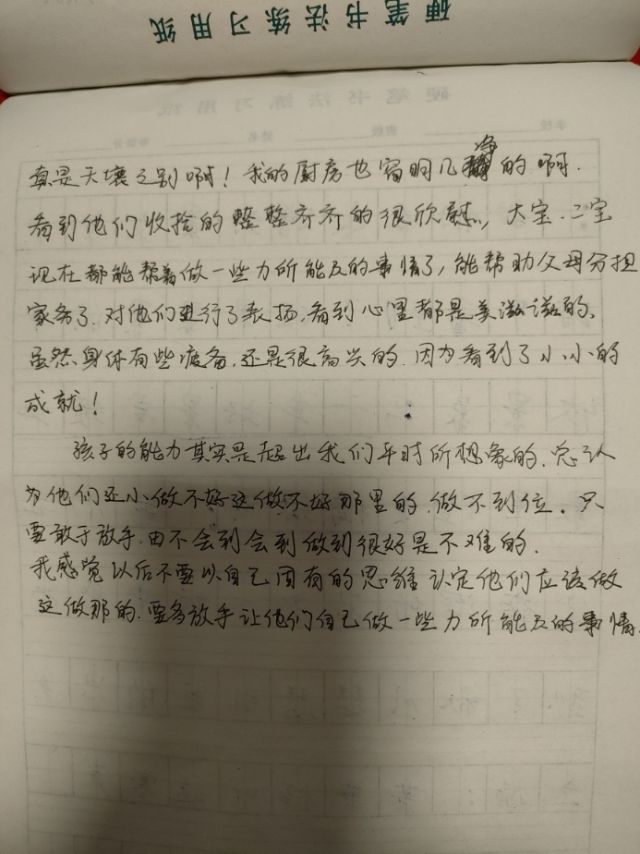 硬笔书法练习用纸
真是天壤之别啊！我的厨房也窗明几净的啊.
看到他们收拾的整整齐齐的很欣慰，大宝.二宝
现在都能帮着做一些力所能及的事情了，能帮助父母分担
家务了.对他们进行了表扬.看到心里都是美滋滋的、
虽然身体有些疲备.还是很高兴的.因为看到了小小的
成就！
孩子的能力其实是超出我们平时所想象的.总认
为他们还小做不好这做不好那里的.做不到位.只
要敢于放手.由不会到会到做到很好是不难的.
我感觉以后不要以自己固有的思维认定他们应该做
这做那的.要多放手让他们自己做一些力所能及的事情.